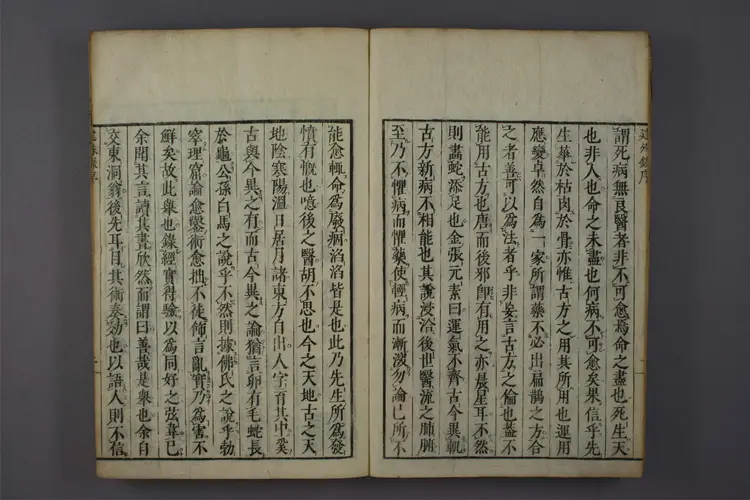 建殊錄序
謂死病無良醫者非不可愈焉命之盡也死生天
也非人也命之未盡也何病不可愈矣果信乎先
生華於枯肉於骨亦惟古方之用其所也運用
應變卓然自為一家所謂藥不必出扁鵲之方合
之者善可以為法者乎非妄言古方之倫也蓋不
能用古方也唐而後邪即有用之亦晨星耳不然
則畫蛇添足也金張元素曰運氣不齊古今異軌
古方新病不相能也其說浸洽後世醫流之肺腑
至乃不懼病而懼藥使輕病而漸深勿論已所不
能愈輙命為廢病滔滔皆是也此乃先生所為發
憤有慨也噫後之醫胡不思也今之天地古之天
地陰寒陽溫日居月諸東方自出人字育其中奚
古與今異之有而古今異之論猶言卵有毛蛇長
於龜公孫白馬之說乎不然則據佛氏之說乎勃
窣理窟論愈鑿術愈拙不徒飾言亂實乃為害不
鮮矣故此舉也錄經實得驗以為同好之弦韋已
余聞其言讀其書欣然而謂曰善哉是舉也余自
交東洞翁後先耳目其術奏効也以語人則不信